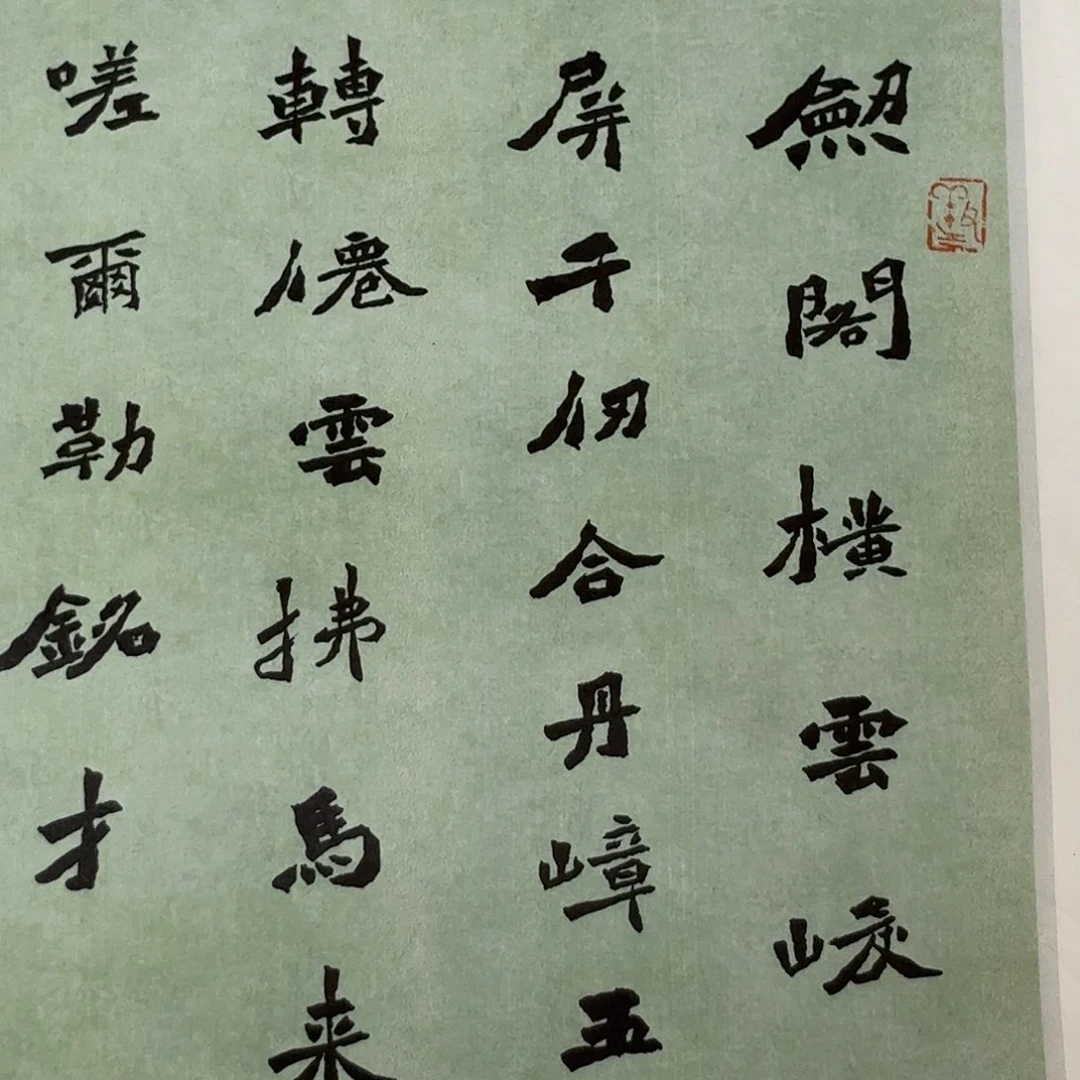 劒閣橫雲峻
屏千仞合丹嶂五
轉僊雲拂馬来
嗟爾勒銘才